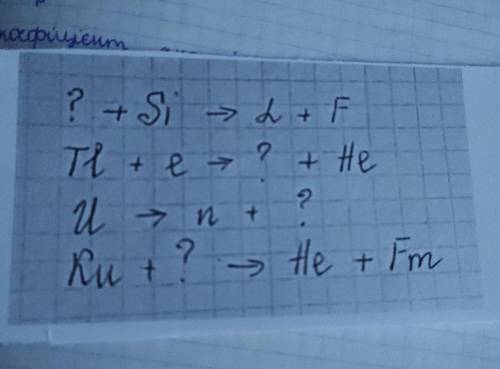 коефіцієнт
? + Si → α + F
Tl + e → ? + He
U → n + ?
Ku + ? → He + Fm